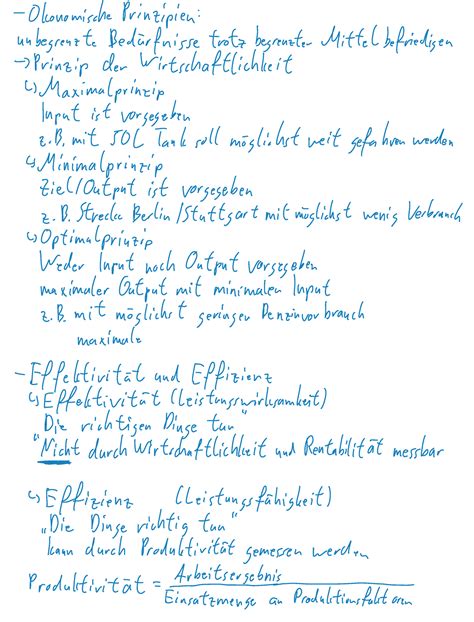 - Ökonomische Prinzipien:
unbegrenzte Bedürfnisse trotz begrenzter Mittel befriedigen
→ Prinzip der Wirtschaftlichkeit
↳ Maximalprinzip
Input ist vorgegeben
z.B. mit 50L Tank soll möglichst weit gefahren werden
↳ Minimalprinzip
Ziel/Output ist vorgegeben
z.B. Strecke Berlin/Stuttgart mit möglichst wenig Verbrauch
↳ Optimalprinzip
Weder Input noch Output vorgegeben
maximaler Output mit minimalen Input
z.B. mit möglichst geringen Benzinverbrauch
maximale
- Effektivität und Effizienz
↳ Effektivität (Leistungswirksamkeit)
"Die richtigen Dinge tun"
Nicht durch Wirtschaftlichkeit und Rentabilität messbar
↳ Effizienz (Leistungsfähigkeit)
„Die Dinge richtig tun"
kann durch Produktivität gemessen werden
Produktivität = Arbeitsergebnis
Einsatzmenge an Produktionsfaktoren